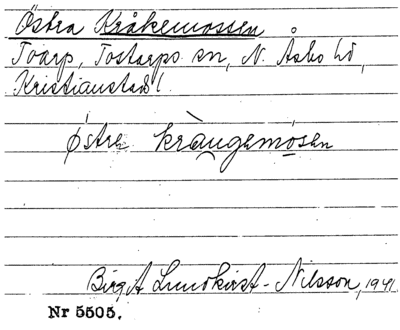 Östra Kråkemossen
Toarp, Tostarps sn, N. Åsbo hd,
Kristianstad l.
østre kràngemosen
Birgit Lundkvist-Nilsson, 1941.
Nr 5505.